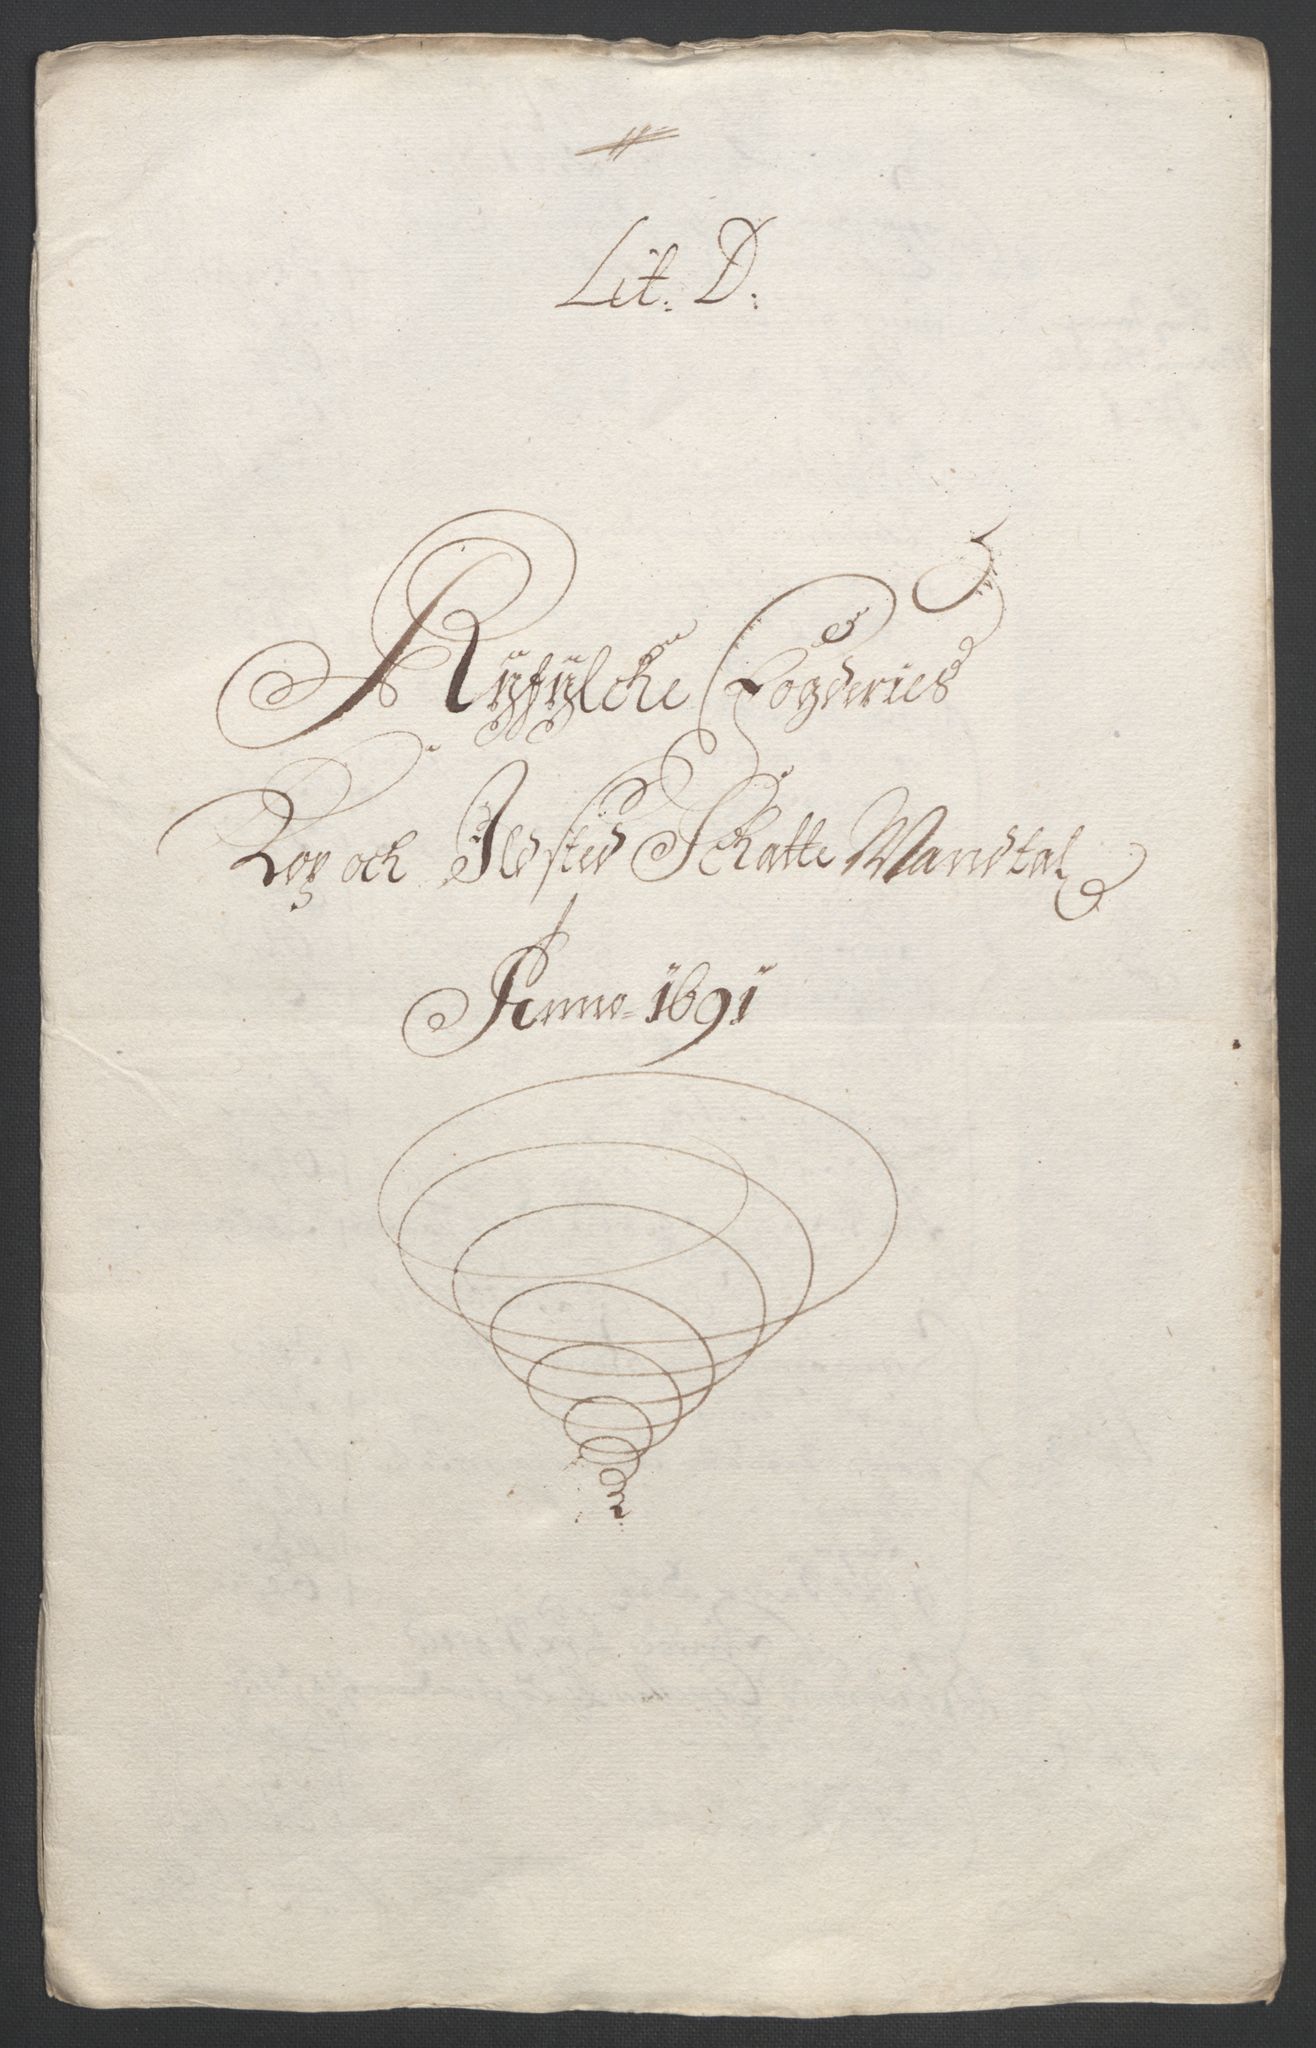 Lit. D:
Ryfylche Fogderies
Kop och Ildsted Schatte Mandtal
Anno 1691